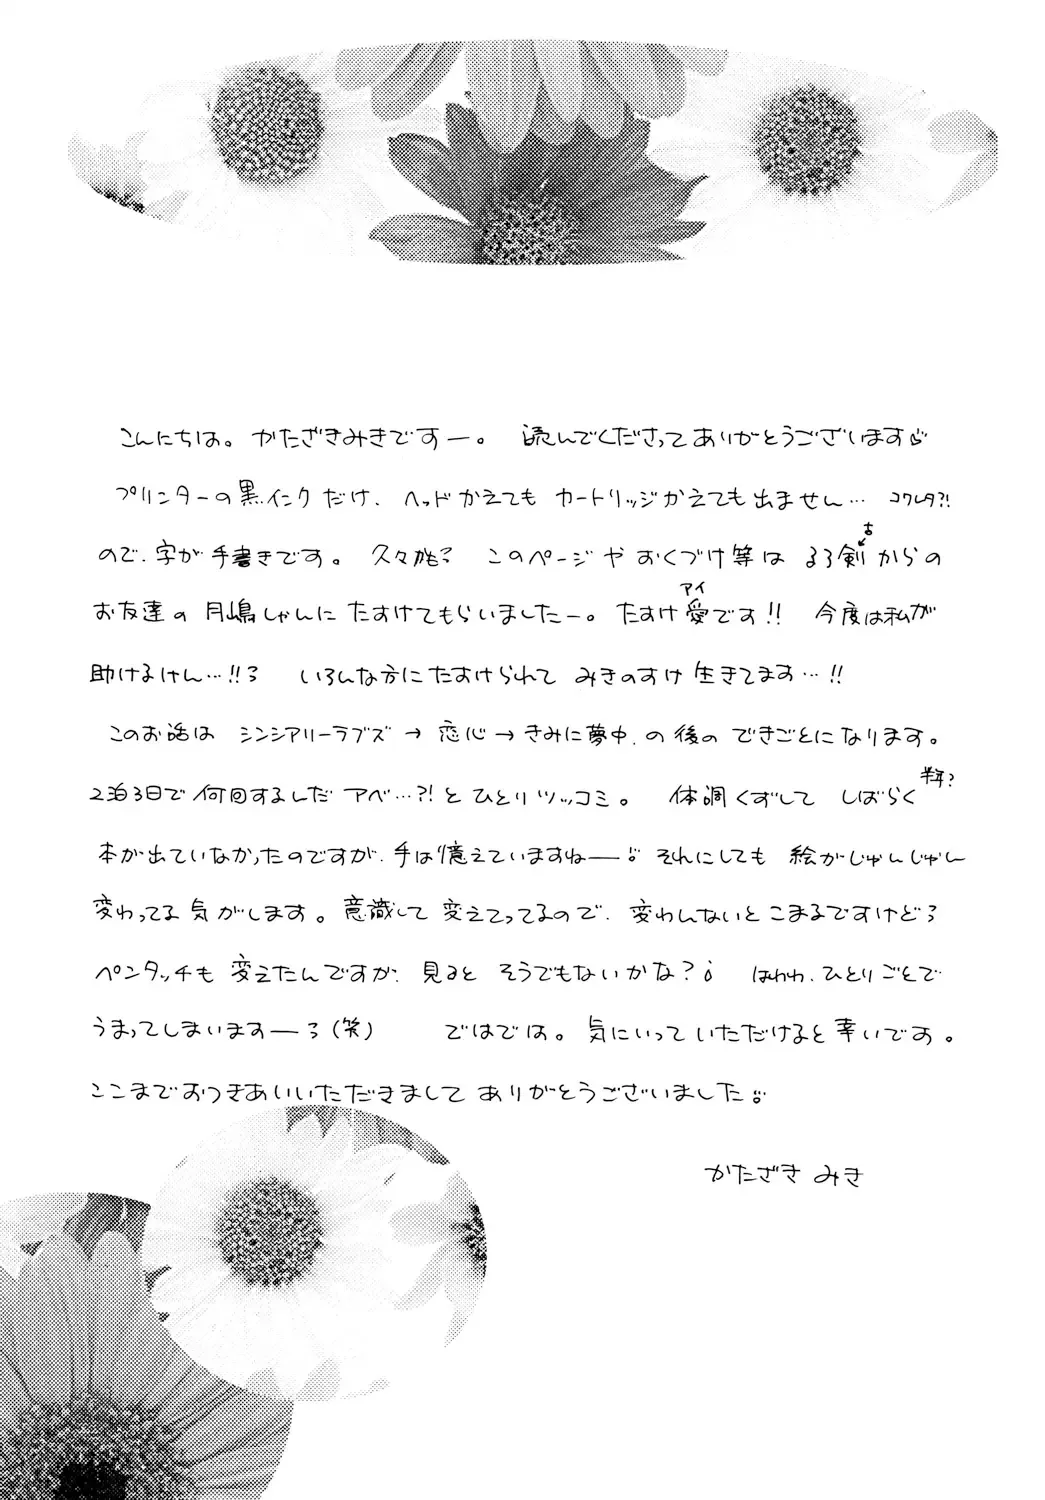 こんにちは。かたざきみきですー。 読んでくださってありがとうございます
プリンターの黒インクだけ、ヘッドかえても カートリッジかえても出ません… コワレタ?!
ので、字が手書きです。 久々かも? このページや おくづけ等は るろ剣からの
古
お友達の 月嶋しゃんに たすけてもらいましたー。 たすけ愛です!! 今度は私が
アイ
助けるけん…!!ろ いろんな方にたすけられて みきのすけ 生きてます…!!
このお話は シンシアリーラブズ → 恋心 → きみに夢中、の後の できごとになります。
2泊3日で 何回するしだ アベ…?!と ひとりツッコミ。 体調くずして しばらく
半年?
本が出ていなかったのですが、手は憶えていますねー それにしても 絵がじゃんじゃん
変わってる気がします。意識して 変えてってるので、変わんないと こまるですけどろ
ペンタッチも 変えたんですが、見ると そうでもないかな? はわわ、ひとりごとで
うまってしまいますーろ(笑) ではでは。気にいって いただけると幸いです。
ここまでおつきあいいただきまして ありがとうございました
かたざき みき